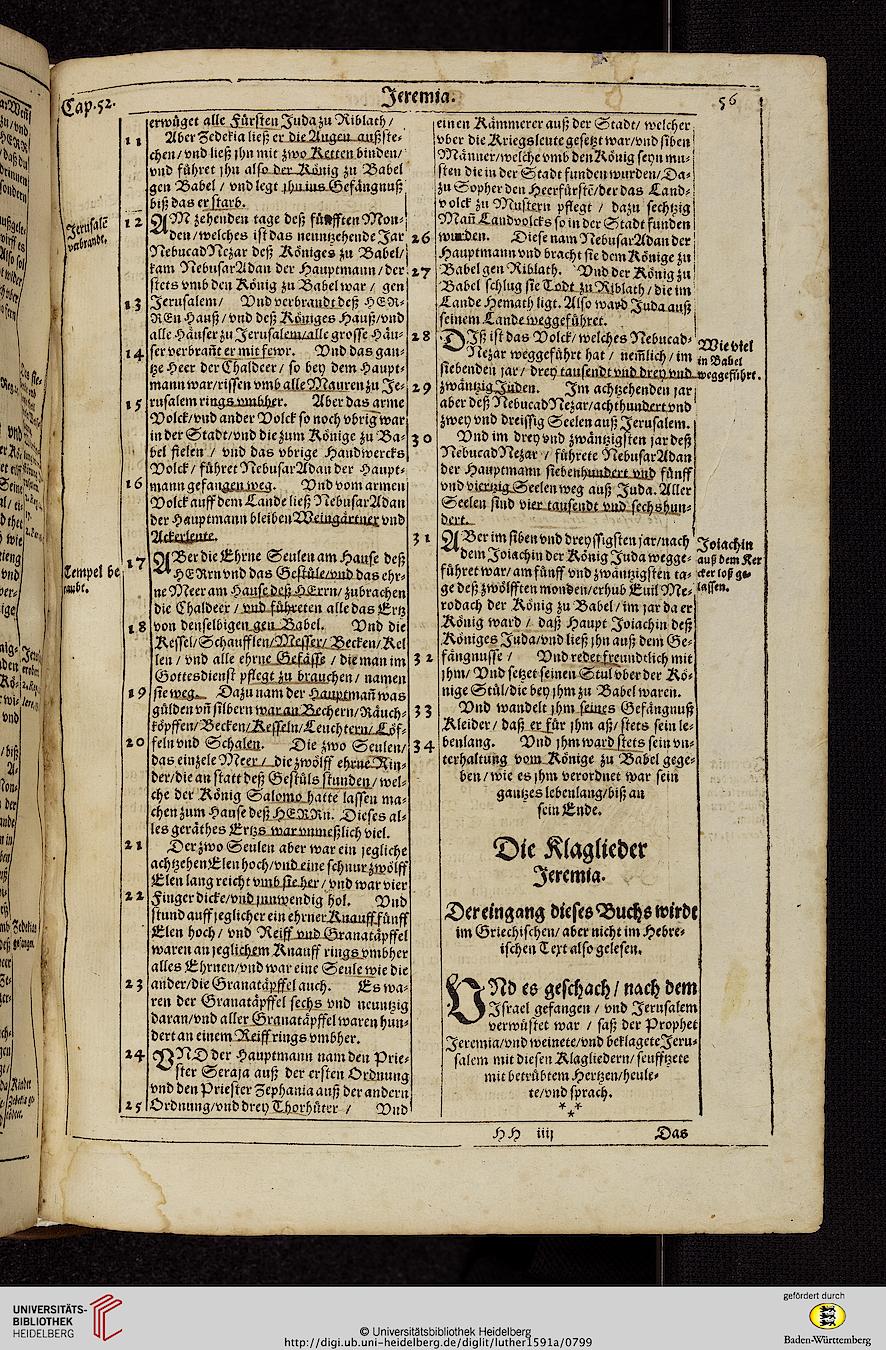 Cap.52.
Jeremia.
56
erwüget alle Fürsten Juda zu Riblath /
11 Aber Zedekia ließ er die Augen außste-
chen / vnd ließ jhn mit zwo Ketten binden/
vnd führet jhn also der König zu Babel
gen Babel / vnd legt jhn ins Gefängnuß
biß das er starb.
Jerusalē
verbrandt.
12 AM zehenden tage deß fünfften Mon-
den / welches ist das neuntzehende Jar
NebucadNezar deß Königes zu Babel/
kam NebusarAdan der Hauptmann / der
stets vmb den König zu Babel war / gen
13 Jerusalem / Vnd verbrandt deß HER-
REn Hauß / vnd deß Königes Hauß/vnd
alle Häuser zu Jerusalem/alle grosse Häu-
14 ser verbrañt er mit fewr. Vnd das gan-
tze Heer der Chaldeer / so bey dem Haupt-
mann war/rissen vmb alle Mauren zu Je-
15 rusalem rings vmbher. Aber das arme
Volck/vnd ander Volck so noch vbrig war
in der Stadt/vnd die zum Könige zu Ba-
bel fielen / vnd das vbrige Handwercks
Volck / führet NebusarAdan der Haupt-
16 mann gefangen weg. Vnd vom armen
Volck auff dem Lande ließ NebusarAdan
der Hauptmann bleiben Weingärtner vnd
Ackerleute.
Tempel be
raubt.
17 ABer die Ehrne Seulen am Hause deß
HERrn vnd das Gestüle/vnd das ehr-
ne Meer am Hause deß HErrn/ zubrachen
die Chaldeer / vnd führeten alle das Ertz
18 von denselbigen gen Babel. Vnd die
Kessel/Schaufflen/Messer/ Becken/Kel
len / vnd alle ehrne Gefässe / die man im
Gottesdienst pflegt zu brauchen / namen
19 sie weg. Dazu nam der Hauptmañ was
gülden vñ silbern war an Bechern/Räuch-
köpffen/Becken/Kesseln/Leuchtern/ Löf-
20 feln vnd Schalen. Die zwo Seulen/
das einzele Meer / die zwölff ehrne Rin-
der/die an statt deß Gestüls stunden / wel-
che der König Salomo hatte lassen ma-
chen zum Hause deß HERRn. Dieses al-
les geräthes Ertzs war vnmeßlich viel.
21 Der zwo Seulen aber war ein jegliche
achtzehen Elen hoch/vnd eine schnur zwölff
Elen lang reicht vmb sie her / vnd war vier
22 Finger dicke/vnd jnnwendig hol. Vnd
stund auff jeglicher ein ehrner Knauff fünff
Elen hoch / vnd Reiff vnd Granatäpffel
waren an jeglichem Knauff rings vmbher
alles Ehrnen/vnd war eine Seule wie die
23 ander/die Granatäpffel auch. Es wa-
ren der Granatäpffel sechs vnd neuntzig
daran/vnd aller Granatäpffel waren hun-
dert an einem Reiff rings vmbher.
24 VND der Hauptmann nam den Prie-
ster Seraja auß der ersten Ordnung
vnd den Priester Zephania auß der andern
25 Ordnung/vnd drey Thorhüter / Vnd
einen Kämmerer auß der Stadt/ welcher
vber die Kriegsleute gesetzt war/vnd siben
Männer/welche vmb den König seyn mu-
sten die in der Stadt funden wurden/Da-
zu Sopher den Heerfürstē/der das Land-
volck zu Mustern pflegt / dazu sechtzig
Mañ Landvolcks so in der Stadt funden
26 wurden. Diese nam NebusarAdan der
Hauptmann vnd bracht sie dem Könige zu
27 Babel gen Riblath. Vnd der König zu
Babel schlug sie Todt zu Riblath / die im
Lande Hemath ligt. Also ward Juda auß
seinem Lande weggeführet.
28 DJß ist das Volck/ welches Nebucad-
Nezar weggeführt hat / nemlich / im
siebenden jar / drey tausendt vnd drey vnd
Wie viel
in Babel
weggeführt.
29 zwäntzig Juden. Jm achtzehenden jar
aber deß NebucadNezar/achthundert vnd
zwey vnd dreissig Seelen auß Jerusalem.
30 Vnd im drey vnd zwäntzigsten jar deß
NebucadNezar / führete NebusarAdan
der Hauptmann siebenhundert vnd fünff
vnd viertzig Seelen weg auß Juda. Aller
Seelen sind vier tausendt vnd sechshun-
dert.
31 ABer im siben vnd dreyssigsten jar/nach
dem Joiachin der König Juda wegge-
führet war/am fünff vnd zwäntzigsten ta-
ge deß zwölfften monden/erhub Euil Me-
rodach der König zu Babel / im jar da er
König ward / daß Haupt Joiachin deß
Königes Juda/vnd ließ jhn auß dem Ge-
Joiachin
auß dem Ker
cker loß ge-
lassen.
32 fängnusse / Vnd redet freundtlich mit
jhm/ Vnd setzet seinen Stul vber der Kö-
nige Stül/die bey jhm zu Babel waren.
33 Vnd wandelt jhm seines Gefängnuß
Kleider / daß er für jhm aß/ stets sein le-
34 benlang. Vnd jhm ward stets sein vn-
terhaltung vom Könige zu Babel gege-
ben / wie es jhm verordnet war sein
gantzes lebenlang/biß an
sein Ende.
Die Klaglieder
Jeremia.
Der eingang dieses Buchs wirdt
im Griechischen / aber nicht im Hebre-
ischen Text also gelesen.
VNd es geschach / nach dem
Jsrael gefangen / vnd Jerusalem
verwüstet war / saß der Prophet
Jeremia/vnd weinete/vnd beklagete Jeru-
salem mit diesen Klagliedern/ seufftzete
mit betrübtem Hertzen/heule-
te/vnd sprach.
* * *
HH iiij
Das
UNIVERSITÄTS-
BIBLIOTHEK
HEIDELBERG
© Universitätsbibliothek Heidelberg
http://digi.ub.uni-heidelberg.de/diglit/luther1591a/0799
gefördert durch
Baden-Württemberg